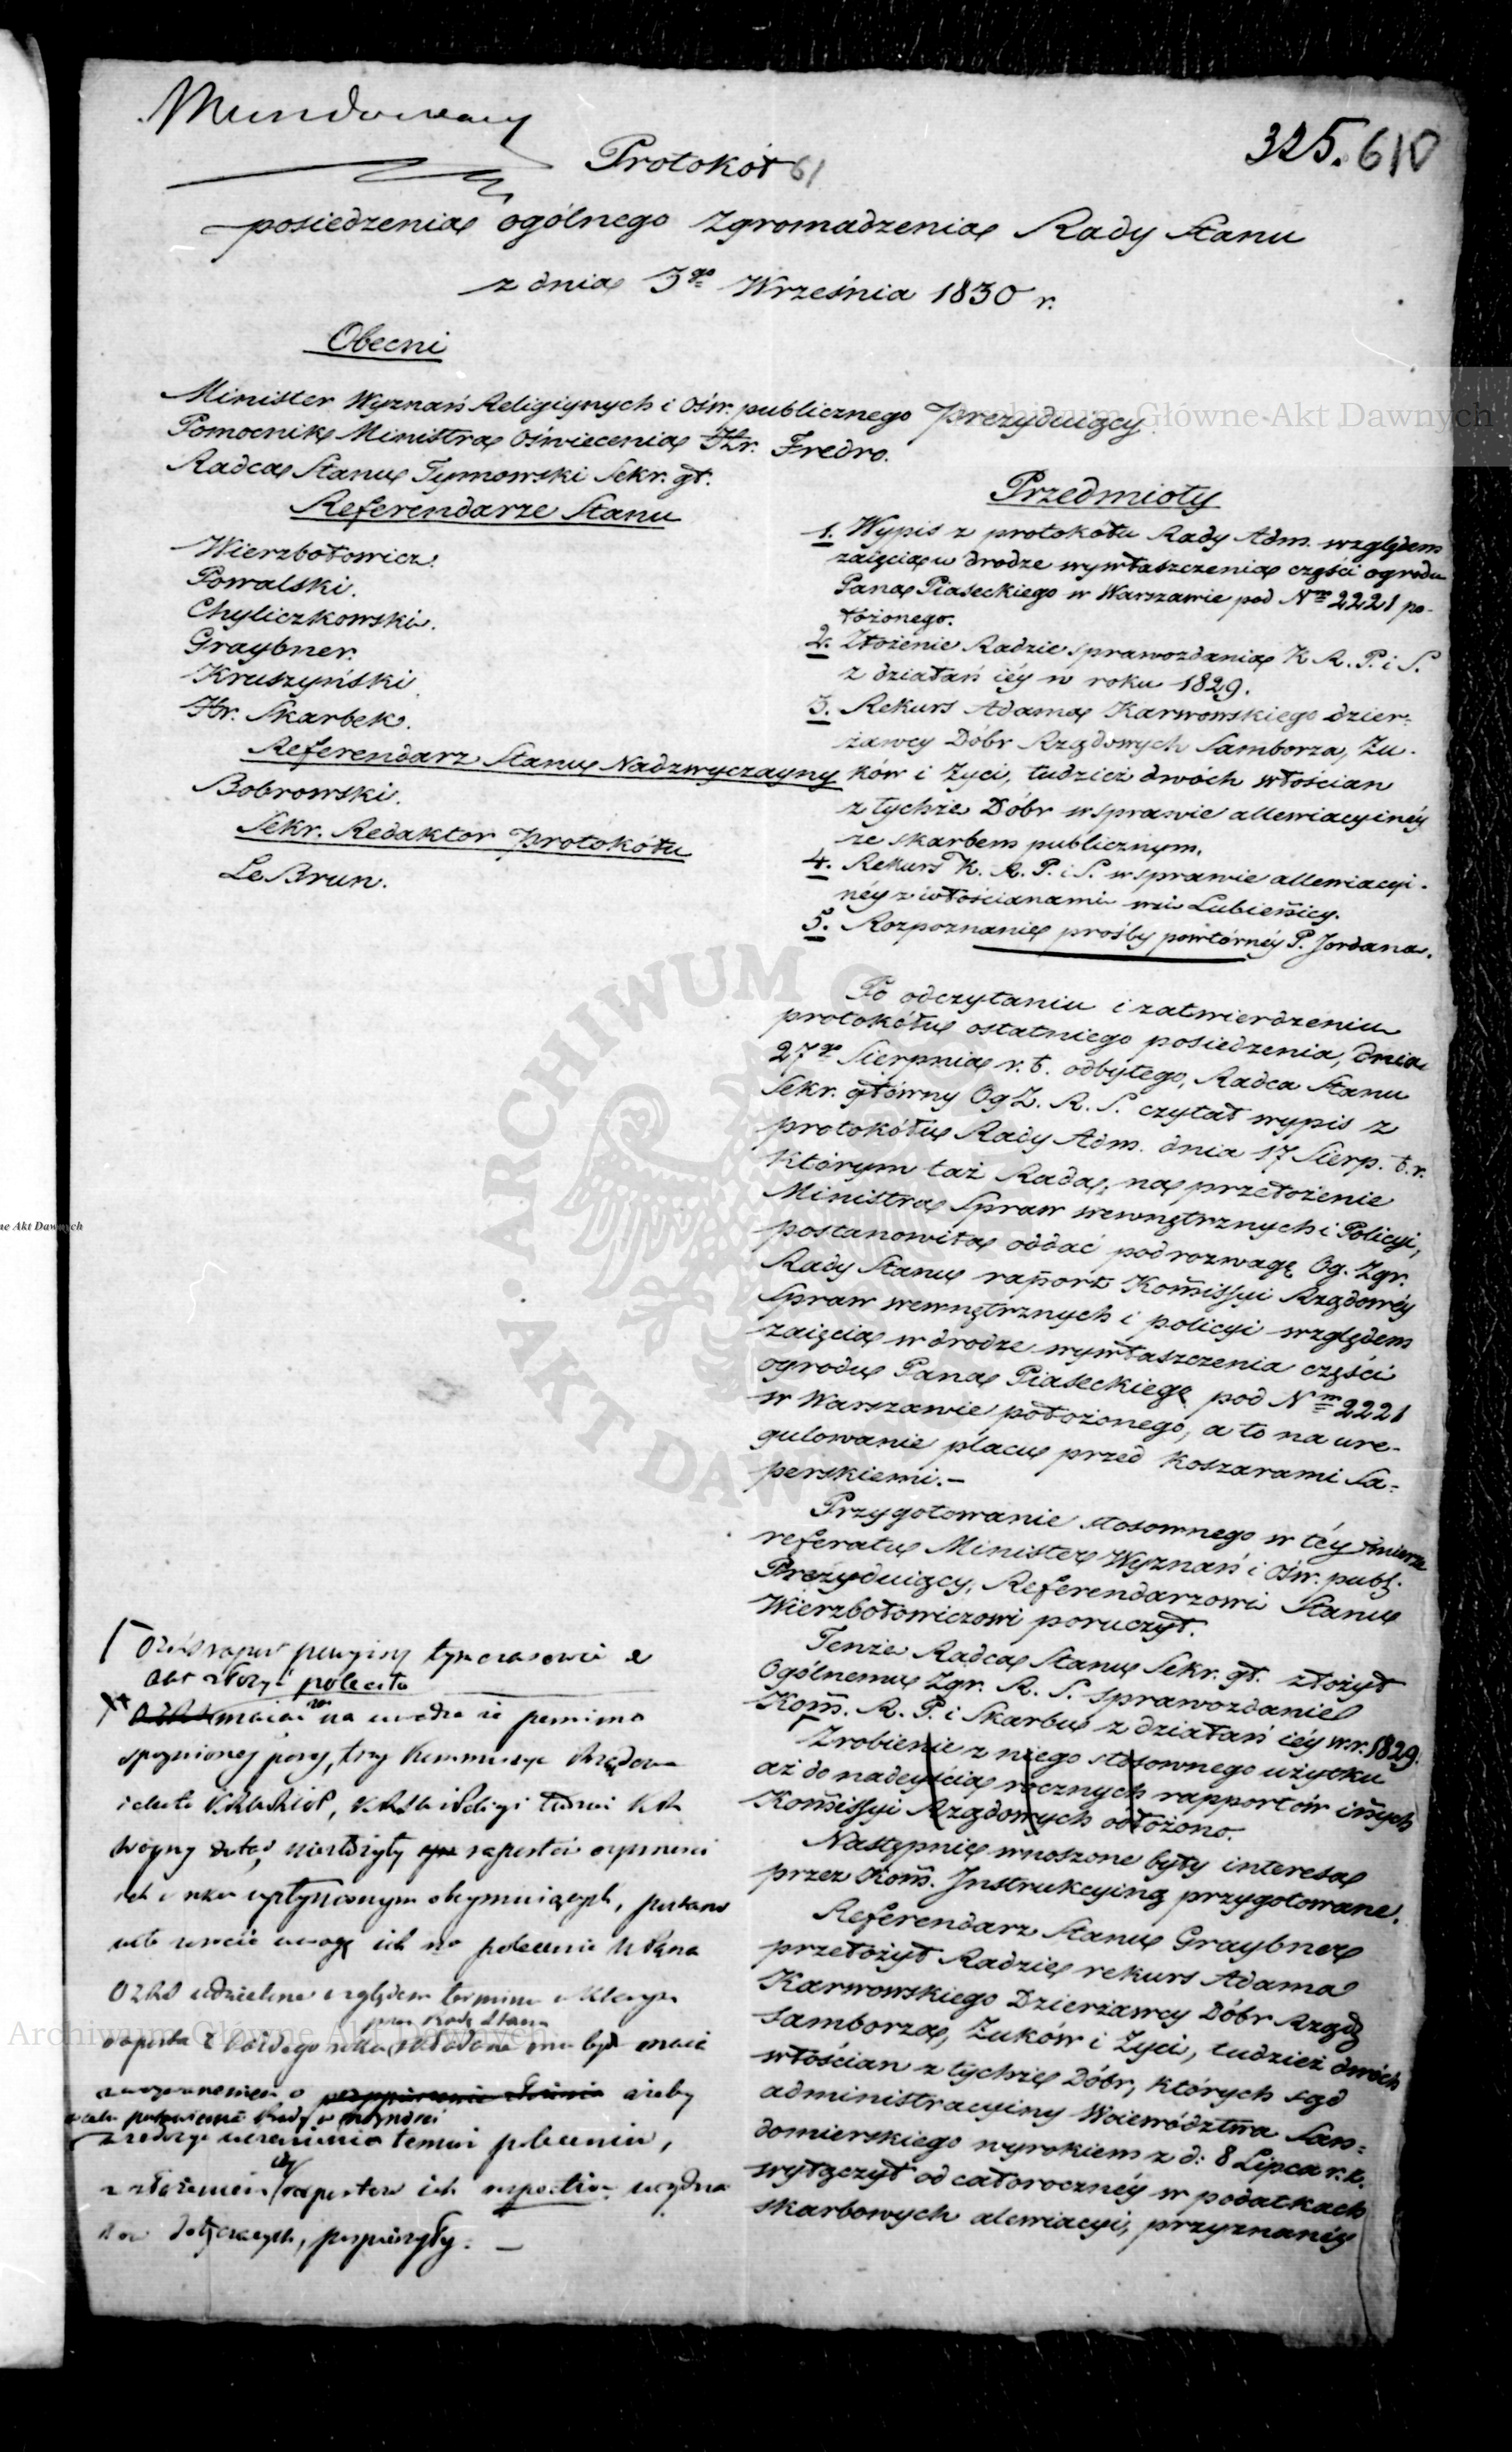 Mundowany
325. 610
Protokół 61
posiedzenia ogólnego Zgromadzenia Rady Stanu
z dnia 3go Września 1830 r.
Obecni
Minister Wyznań Religiynych i Ośw. publicznego Prezyduiący.
Pomocnik Ministra Oświecenia Hr. Fredro.
Radca Stanu Tymowski Sekr. gł.
Referendarze Stanu
Wierzbołowicz.
Powalski.
Chyliczkowski.
Graybner.
Kruszyński.
Hr. Skarbek.
Referendarz Stanu Nadzwyczayny
Bobrowski.
Sekr. Redaktor Protokółu
Le Brun.
Przedmioty
1. Wypis z protokółu Rady Adm. względem
zaięcia w drodze wywłaszczenia części ogrodu
Pana Piaseckiego w Warszawie pod Nrm 2221 po-
łożonego.
2. Złożenie Radzie sprawozdania K. R. P. i S.
z działań iéy w roku 1829.
3. Rekurs Adama Karwowskiego dzier-
żawcy Dóbr Rządowych Samborza, Żu-
ków i Życi, tudzież dwóch włościan
z tychże Dóbr w sprawie allewiacyinéy
ze skarbem publicznym.
4. Rekurs K. R. P. i S. w sprawie allewiacyi-
néy z włościanami wsi Lubienicy.
5. Rozpoznanie prośby powtórnéy P. Jordana.
Po odczytaniu i zatwierdzeniu
protokółu ostatniego posiedzenia, dnia
27go Sierpnia r. b. odbytego, Radca Stanu
Sekr. główny Og. Z. R. S. czytał wypis z
protokółu Rady Adm. dnia 17 Sierp. b. r.
którym taż Rada, na przełożenie
Ministra Spraw wewnętrznych i Policyi,
postanowiła oddać pod rozwagę Og. Zgr.
Rady Stanu raport Kommissyi Rządowéy
Spraw wewnętrznych i policyi względem
zaięcia w drodze wywłaszczenia części
ogrodu Pana Piaseckiego pod Nrm 2221
w Warszawie położonego, a to na ure-
gulowanie placu przed koszarami Sa-
perskiemi.-
Przygotowanie stosownego w téy mierze
referatu Minister Wyznań i Ośw. publ.
Prezyduiący, Referendarzowi Stanu
Wierzbołowiczowi poruczył.
Tenże Radca Stanu Sekr. gł. złożył
Ogólnemu Zgr. R. S. sprawozdanie
Kom. R. P. i Skarbu z działań iéy w r. 1829.
Zrobienie z niego stosownego użytku
aż do nadeyścia rocznych rapportów innych
Kommissyi Rządowych odłożono.
Następnie wnoszone były interesa
przez Kom. Instrukcyiną przygotowane.
Referendarz Stanu Graybner
przełożył Radzie rekurs Adama
Karwowskiego Dzierżawcy Dóbr Rząd
Samborza, Żuków i Życi, tudzież dwóch
włościan z tychże Dóbr, których sąd
administracyiny Woiewództwa San-
domierskiego wyrokiem z d: 8 Lipca r. z.
wyłączył od całorocznéy w podatkach
skarbowych alewiacyi, przyznanéy
raport powyższy tymczasowie do
Akt złożyć poleciła
maiąc na uwadze że pomimo
spóznionej pory, trzy Kommissye Rządowe
Woyny dotąd nie złożyły raportów
postano
wiło zwrócić uwagę ich na polecenie
OZRS udzielone względem terminu
przez Radę Stanu
raporta z każdego roku składane być maią
ażeby
temu poleceniu,
raportów ich
pospieszyły. -
Archiwum Główne Akt Dawnych
Archiwum Główne Akt Dawnych
ne Akt Dawnych
ARCHIWUM G
AKT DAW